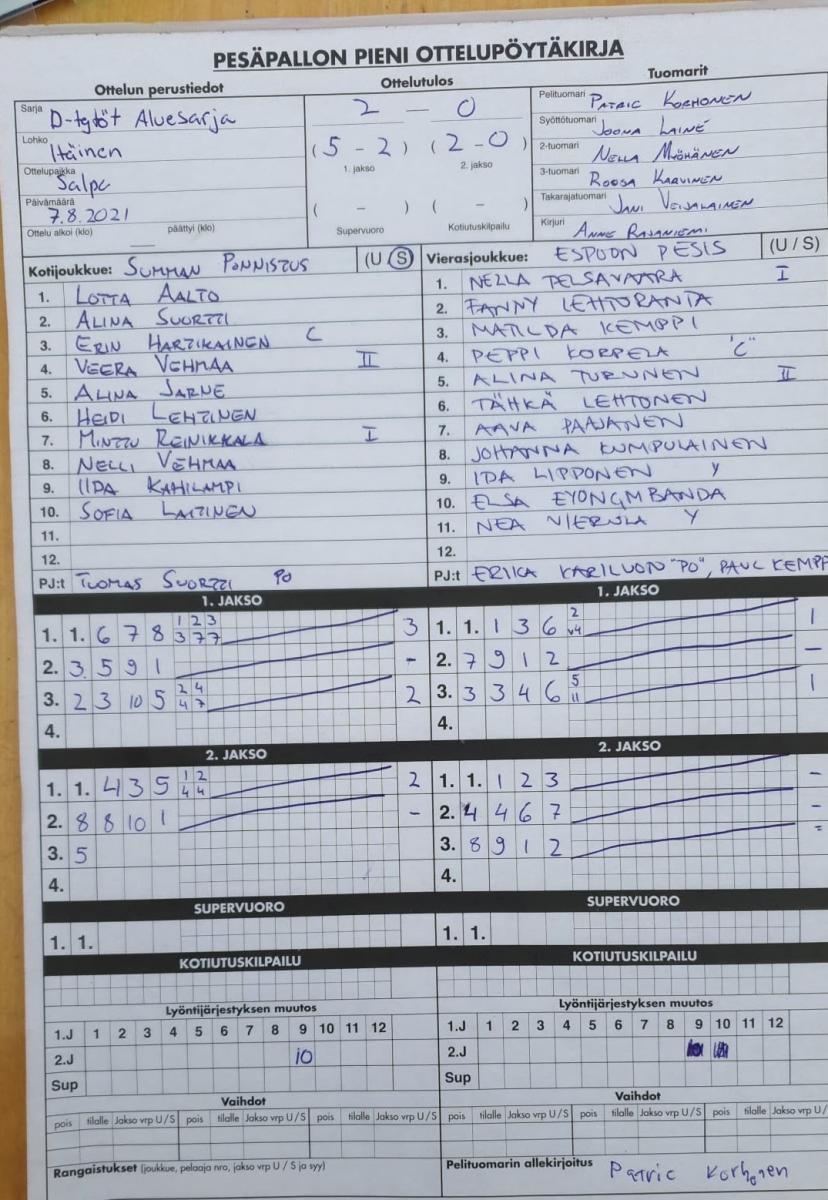 PESÄPALLON PIENI OTTELUPÖYTÄKIRJA
Ottelun perustiedot
Sarja D-tytöt Aluesarja
Lohko Itäinen
Ottelupaikka Salpa
Päivämäärä 7.8.2021
Ottelu alkoi (klo) päättyi (klo)
Ottelutulos
2 - 0
(5 - 2) (2 - 0)
1. jakso 2. jakso
( - ) ( - )
Supervuoro Kotiutuskilpailu
Tuomarit
Pelituomari PATRIC KORHONEN
Syöttötuomari JOONA LAINE
2-tuomari NELLA MYÖHÄNEN
3-tuomari ROOSA KARVINEN
Takarajatuomari JANI VEIJALAINEN
Kirjuri ANNE RAJANIEMI
Kotijoukkue: SUMMAN PONNISTUS (U S)
1. LOTTA AALTO
2. ALINA SUORTTI
3. ERIN HARTIKAINEN C
4. VEERA VEHMAA II
5. ALINA JARNE
6. HEIDI LEHTINEN
7. MINTTU REINIKKALA I
8. NELLI VEHMAA
9. IIDA KAHILAMPI
10. SOFIA LAITINEN
11.
12.
PJ:t TUOMAS SUORTTI PO
Vierasjoukkue: ESPOON PESIS (U / S)
1. NELLA PELSAVAARA I
2. FANNY LEHTORANTA
3. MATILDA KEMPPI
4. PEPPI KORPELA "C"
5. ALINA TURUNEN II
6. TÄHKÄ LEHTONEN
7. AAVA PAAJANEN
8. JOHANNA KUMPULAINEN
9. IDA LIPPONEN Y
10. ELSA EYONGMBANDA
11. NEA VIERULA Y
12.
PJ:t ERIKA KARILUON "PO", PAUL KEMPP
1. JAKSO
1. 1. 6 7 8 1 2 3 3
3 7 7
2. 3 5 9 1 -
3. 2 3 10 5 2 4 2
4 7
4.
1. JAKSO
1. 1. 1 3 6 2 1
v4
2. 7 9 1 2 -
3. 3 3 4 6 5 1
11
4.
2. JAKSO
1. 1. 4 3 5 1 2 2
4 4
2. 8 8 10 1 -
3. 5
4.
2. JAKSO
1. 1. 1 2 3 -
2. 4 4 6 7 -
3. 8 9 1 2 =
4.
SUPERVUORO
1. 1.
SUPERVUORO
1. 1.
KOTIUTUSKILPAILU
KOTIUTUSKILPAILU
Lyöntijärjestyksen muutos
1.J 1 2 3 4 5 6 7 8 9 10 11 12
2.J 10
Sup
Lyöntijärjestyksen muutos
1.J 1 2 3 4 5 6 7 8 9 10 11 12
2.J
Sup
Vaihdot
pois tilalle Jakso vrp U / S pois tilalle Jakso vrp U / S pois tilalle Jakso vrp U / S
Vaihdot
pois tilalle Jakso vrp U / S pois tilalle Jakso vrp U / S pois tilalle Jakso vrp U /
Rangaistukset (joukkue, pelaaja nro, jakso vrp U / S ja syy)
Pelituomarin allekirjoitus Patric Korhonen